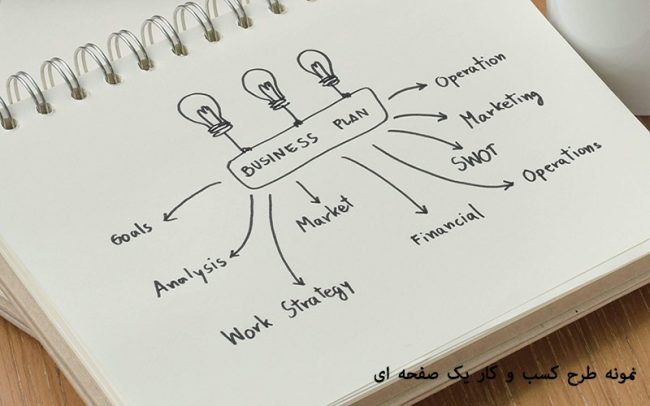 BUSINESS PLAN
Operation
Marketing
SWOT
Operations
Financial
Market
Work Strategy
Analysis
Goals
نمونه طرح کسب و کار یک صفحه ای